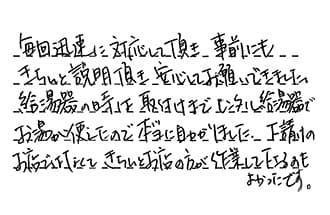 毎回迅速に対応して頂き 事前にも
きちんと説明頂き 安心してお願いできました。
給湯器の時は取付けまでレンタル給湯器で
お湯が使えたので本当に助かりました。下請けの
お店ではなくて きちんとお店の方が作業して下さるのも
よかったです。